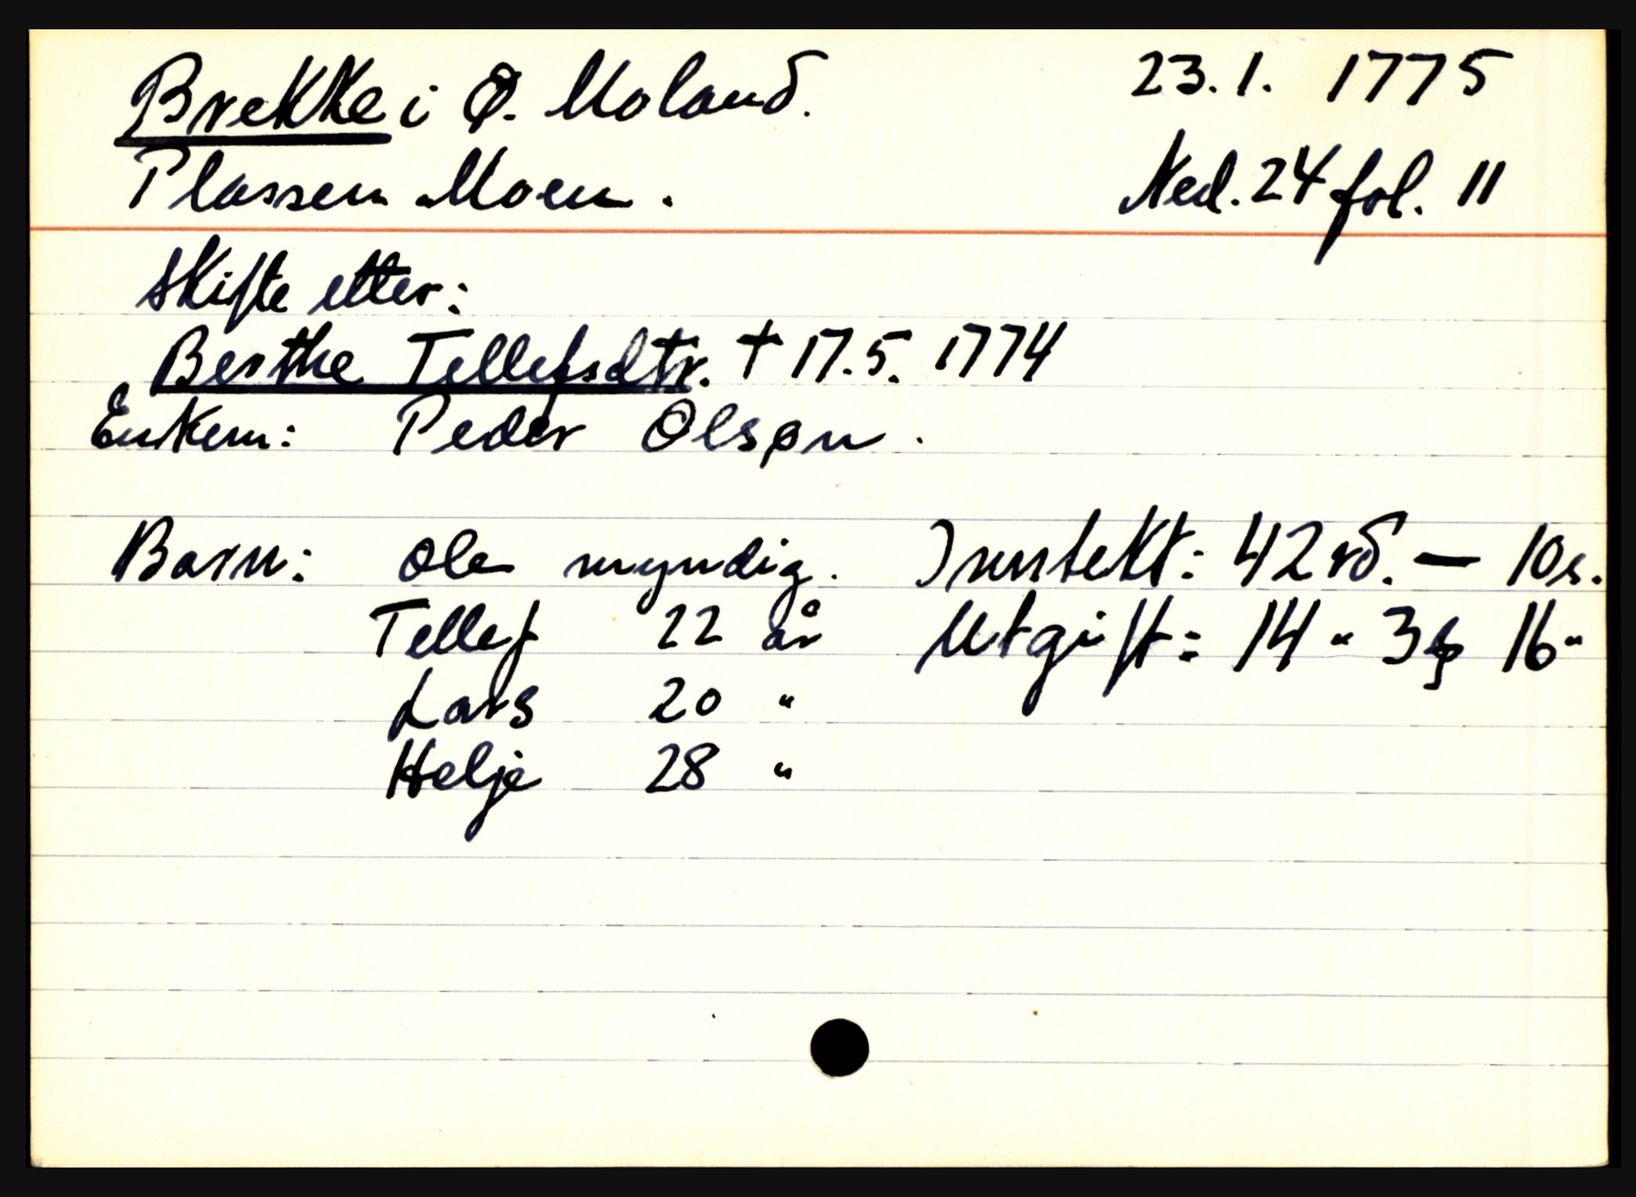 Brekke i Ø. Moland. 23.1. 1775
Plassen Moen. Ned. 24 fol. 11
Skifte etter:
Berthe Tellefsdtr. † 17.5. 1774
Enkem: Peder Olsøn.
Barn: Ole myndig. Inntekt: 42 rd. — 10 s.
Tellef 22 år Utgift: 14 " 3 ꝑ 16 "
Lars 20 "
Helje 28 "